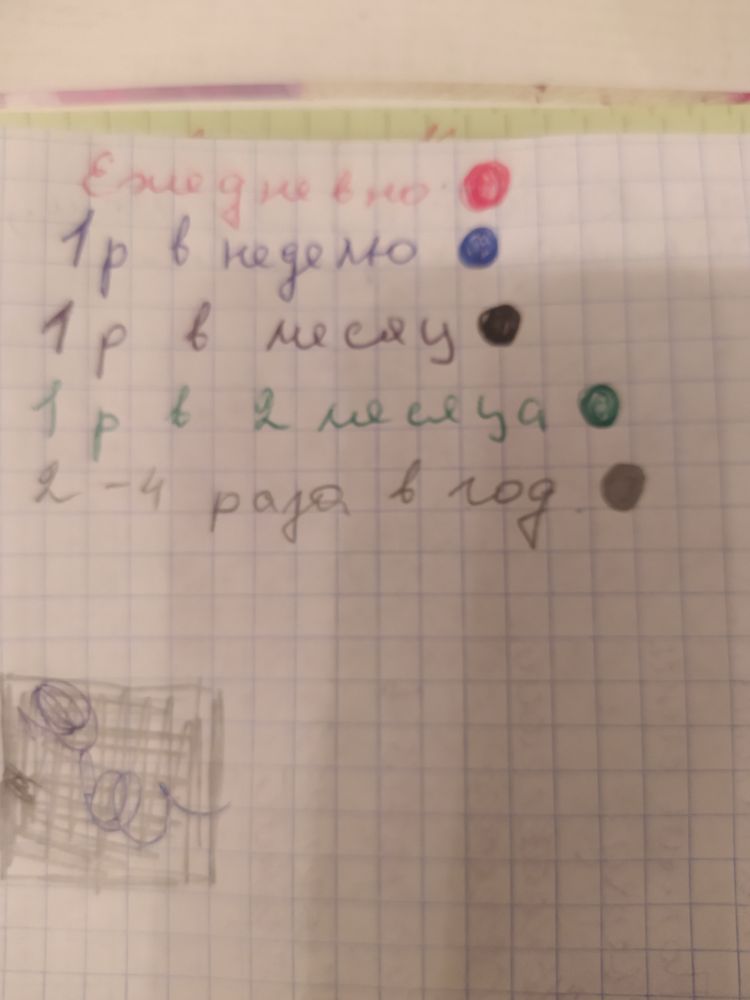 Ежедневно
1 р в неделю
1 р в месяц
1 р в 2 месяца
2-4 раза в год